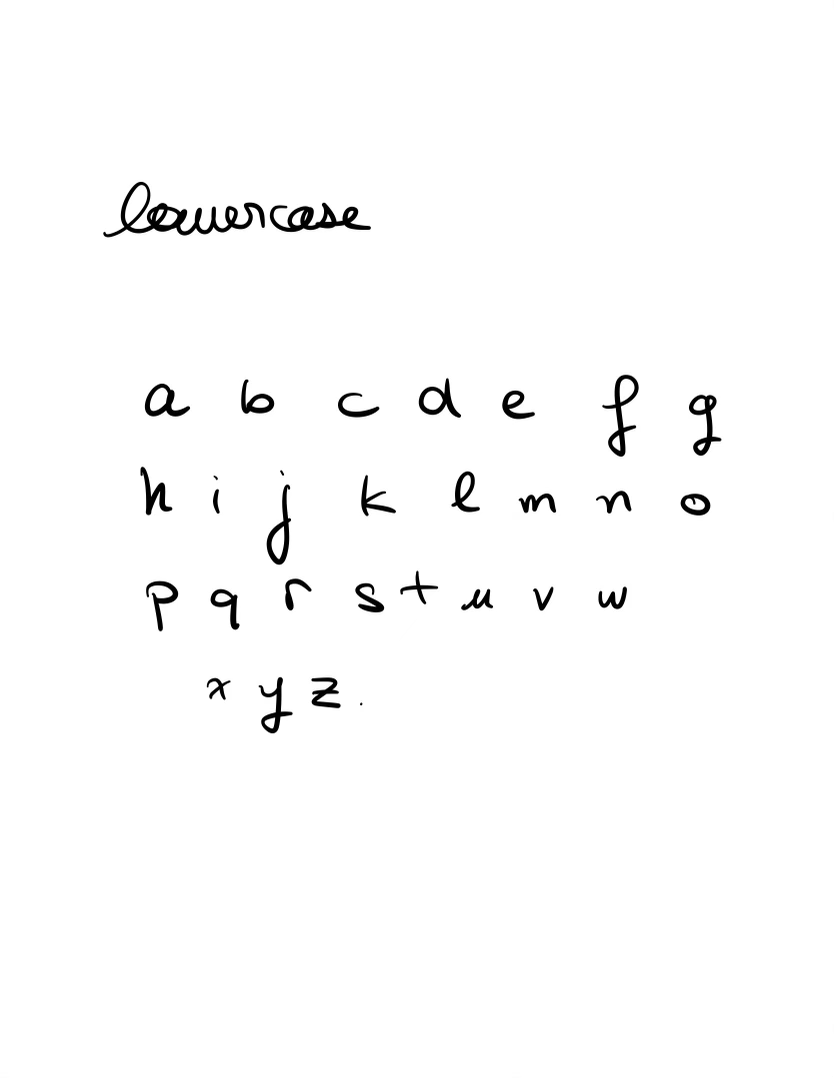 lowercase
a b c d e f g
h i j k l m n o
p q r s t u v w
x y z .